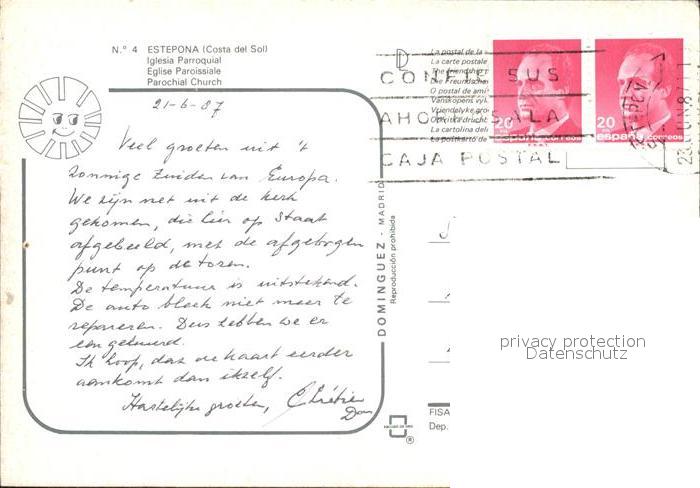 N.° 4 ESTEPONA (Costa del Sol)
Iglesia Parroquial
Eglise Paroissiale
Parochial Church
21-6-87
Veel groeten uit 't
zonnige Zuiden van Europa.
We zijn net uit de kerk
gekomen, die hier op staat
afgebeeld, met de afgebogen
punt op de toren.
De temperatuur is uitstekend.
De auto bleek niet meer te
repareren. Dus hebben we er
een gehuurd.
Ik hoop, dat de kaart eerder
aankomt dan ikzelf.
Hartelijke groeten, Chrétien
DOMINGUEZ - MADRID
Reproducción prohibida
La postal de la
La carte postale
The friendship
Die Freundschaf
O postal de ami
Vanskapens vyk
Vriendelyke gro
La cartolina del
La postkarto de
CONFIE SUS
AHORROS A LA
CAJA POSTAL
20
españa correos
20
españa correos
privacy protection
Datenschutz
FISA
Dep.
®